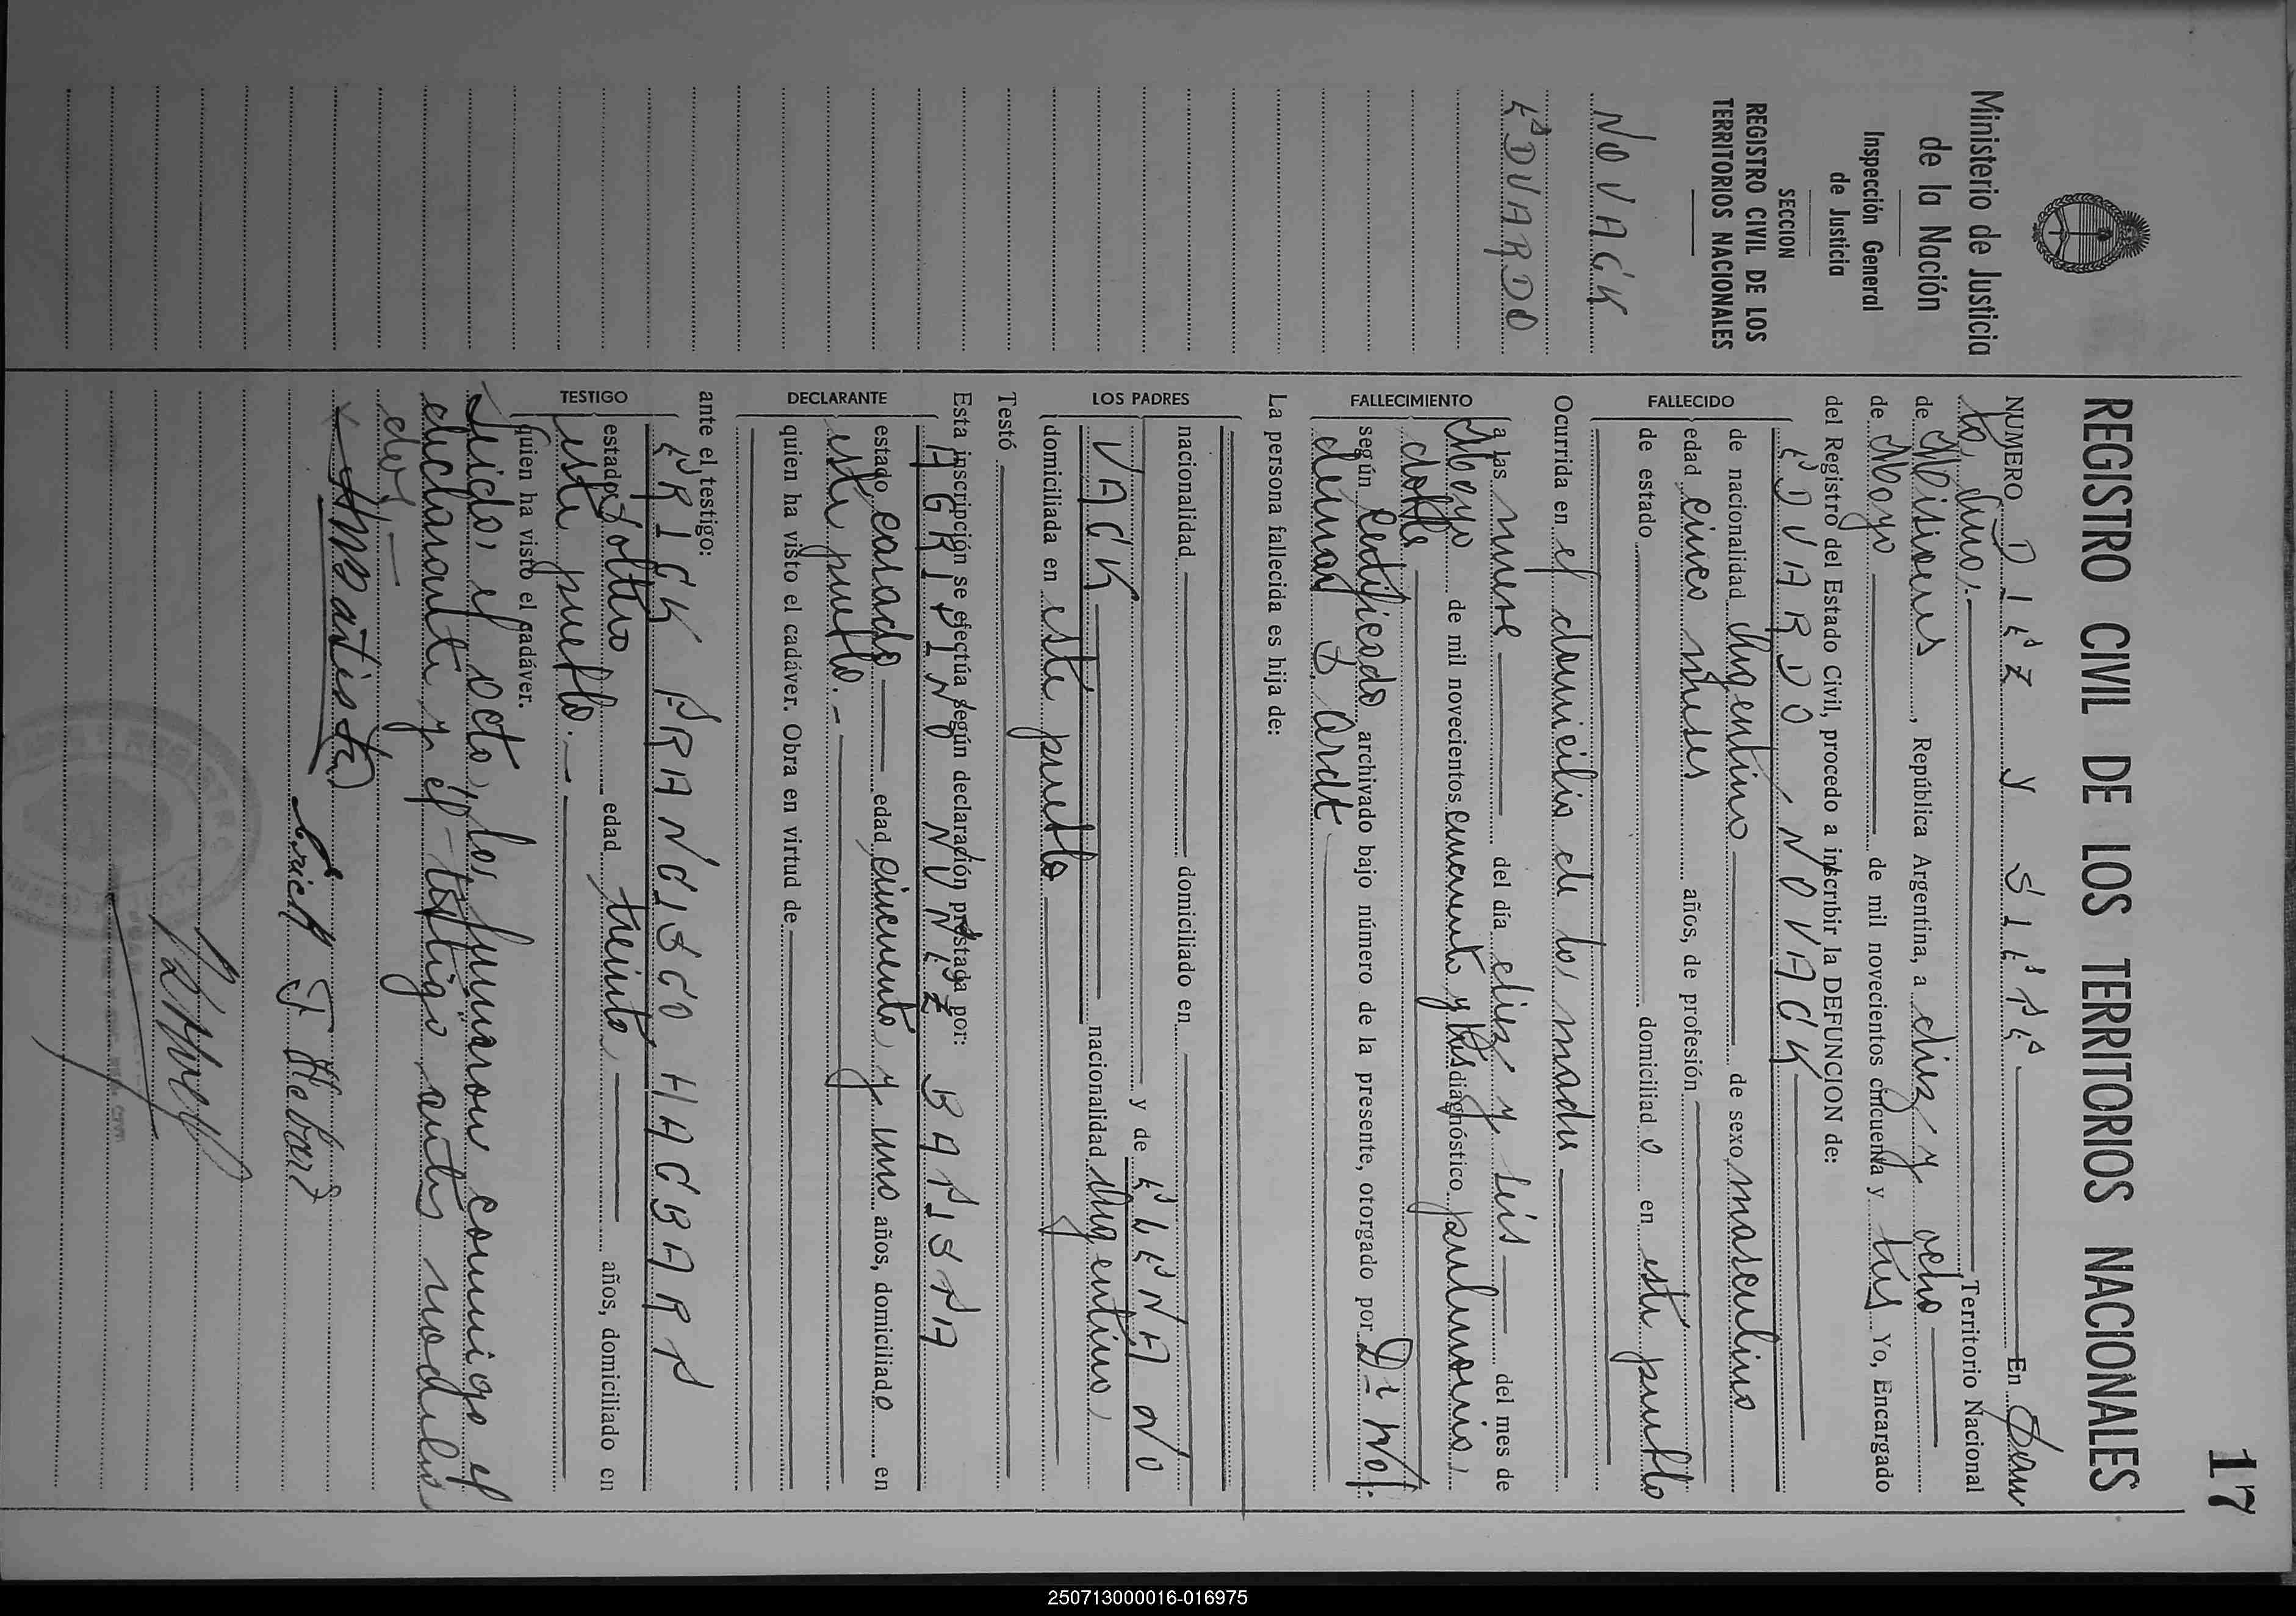 17
REGISTRO CIVIL DE LOS TERRITORIOS NACIONALES
Ministerio de Justicia
de la Nación
Inspección General
de Justicia
SECCION
REGISTRO CIVIL DE LOS
TERRITORIOS NACIONALES
NOVACK
EDUARDO
NUMERO DIEZ Y SIETE En San
ta Ana. Territorio Nacional
de Misiones, República Argentina, a diez y ocho
de Mayo de mil novecientos cincuenta y tres Yo, Encargado
del Registro del Estado Civil, procedo a inscribir la DEFUNCION de:
FALLECIDO
EDUARDO NOVACK
de nacionalidad Argentino de sexo masculino
edad cinco meses años, de profesión
de estado domiciliado en este pueblo
Ocurrida en el domicilio de la madre
FALLECIMIENTO
a las nueve del día diez y seis del mes de
Mayo de mil novecientos cincuenta y tres diagnóstico pulmonia
doble
según Certificado archivado bajo número de la presente, otorgado por Dr Wol-
demar
La persona fallecida es hija de:
LOS PADRES
nacionalidad domiciliado en
y de ELENA NO
VACK nacionalidad Argentina
domiciliada en este pueblo
Testó
Esta inscripción se efectúa según declaración prestada por:
DECLARANTE
AGRIPINO NUNEZ BATISTA
estado casado edad cincuenta y uno años, domiciliado en
este pueblo.-
quien ha visto el cadáver. Obra en virtud de
ante el testigo:
TESTIGO
ERICK FRANCISCO HACBART
estado soltero edad treinta años, domiciliado en
este pueblo.-
quien ha visto el cadáver.
Leida el acta, la firmaron conmigo el
declarante y el testigo antes nombra
do.-
250713000016-016975